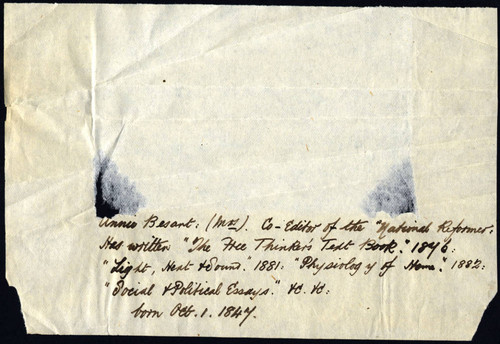 Annie Besant: (Mrs). Co-Editor of the "National Reformer".
Has written "The Free Thinker's Text Book." 1876:
"Light, Heat & Sound." 1881: "Physiology of Home". 1882:
"Social & Political Essays." &c. &c:
born Oct. 1. 1847.